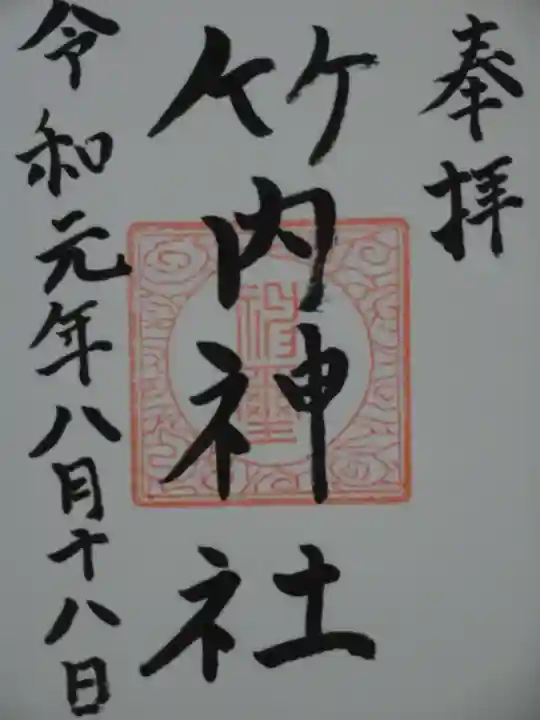 奉拝
竹内神社
令和元年八月十八日